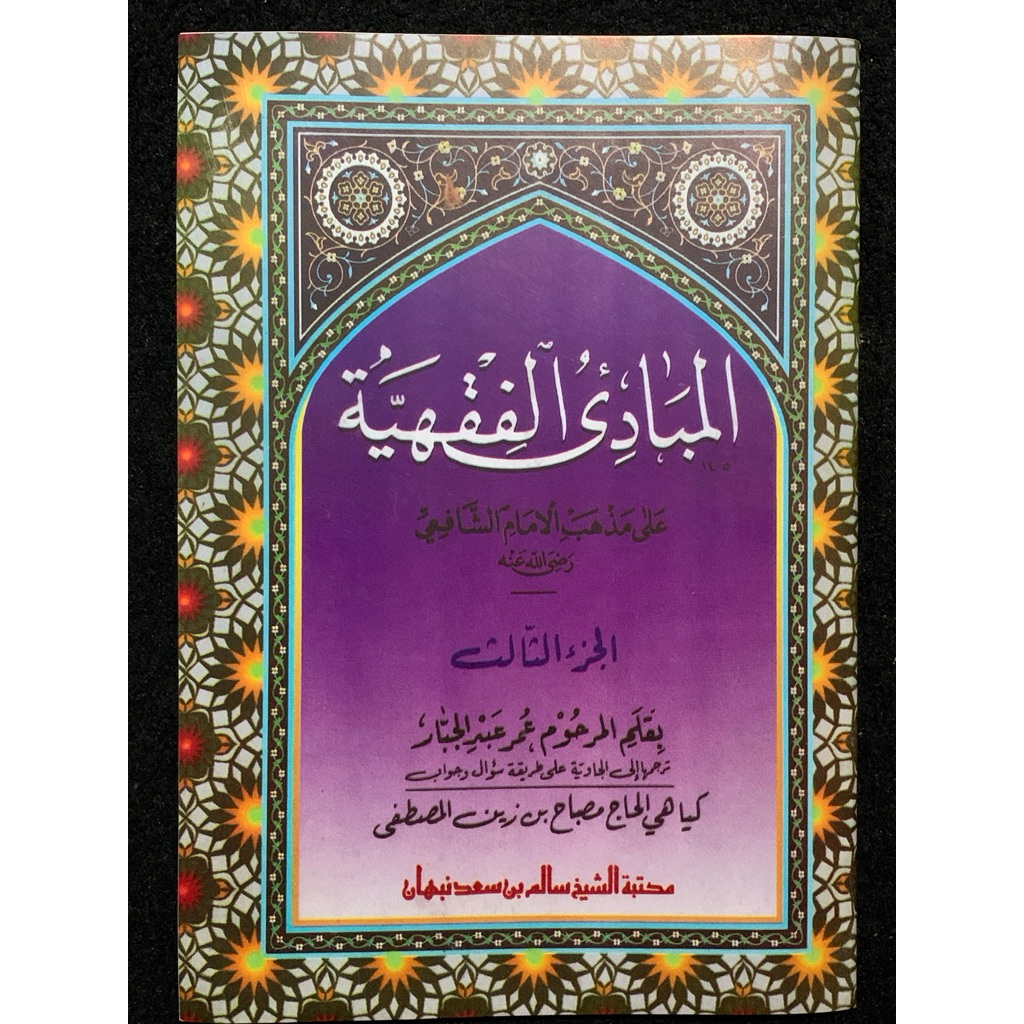 المَبَادِئُ الفِقْهِيَّةُ
١٤٥
عَلَى مَذْهَبِ الإمَامِ الشَّافِعِيّ
رَضِيَ اللّٰهُ عَنْه
الجزء الثّالث
بِقَلَمِ المرحُوْم عُمر عَبْدِ الجبّار
ترجمها إلى الجاوية على طريقة سؤال وجواب
كياهي الحاج مصباح بن زين المصطفى
مكتبة الشيخ سالم بن سعد نبهان